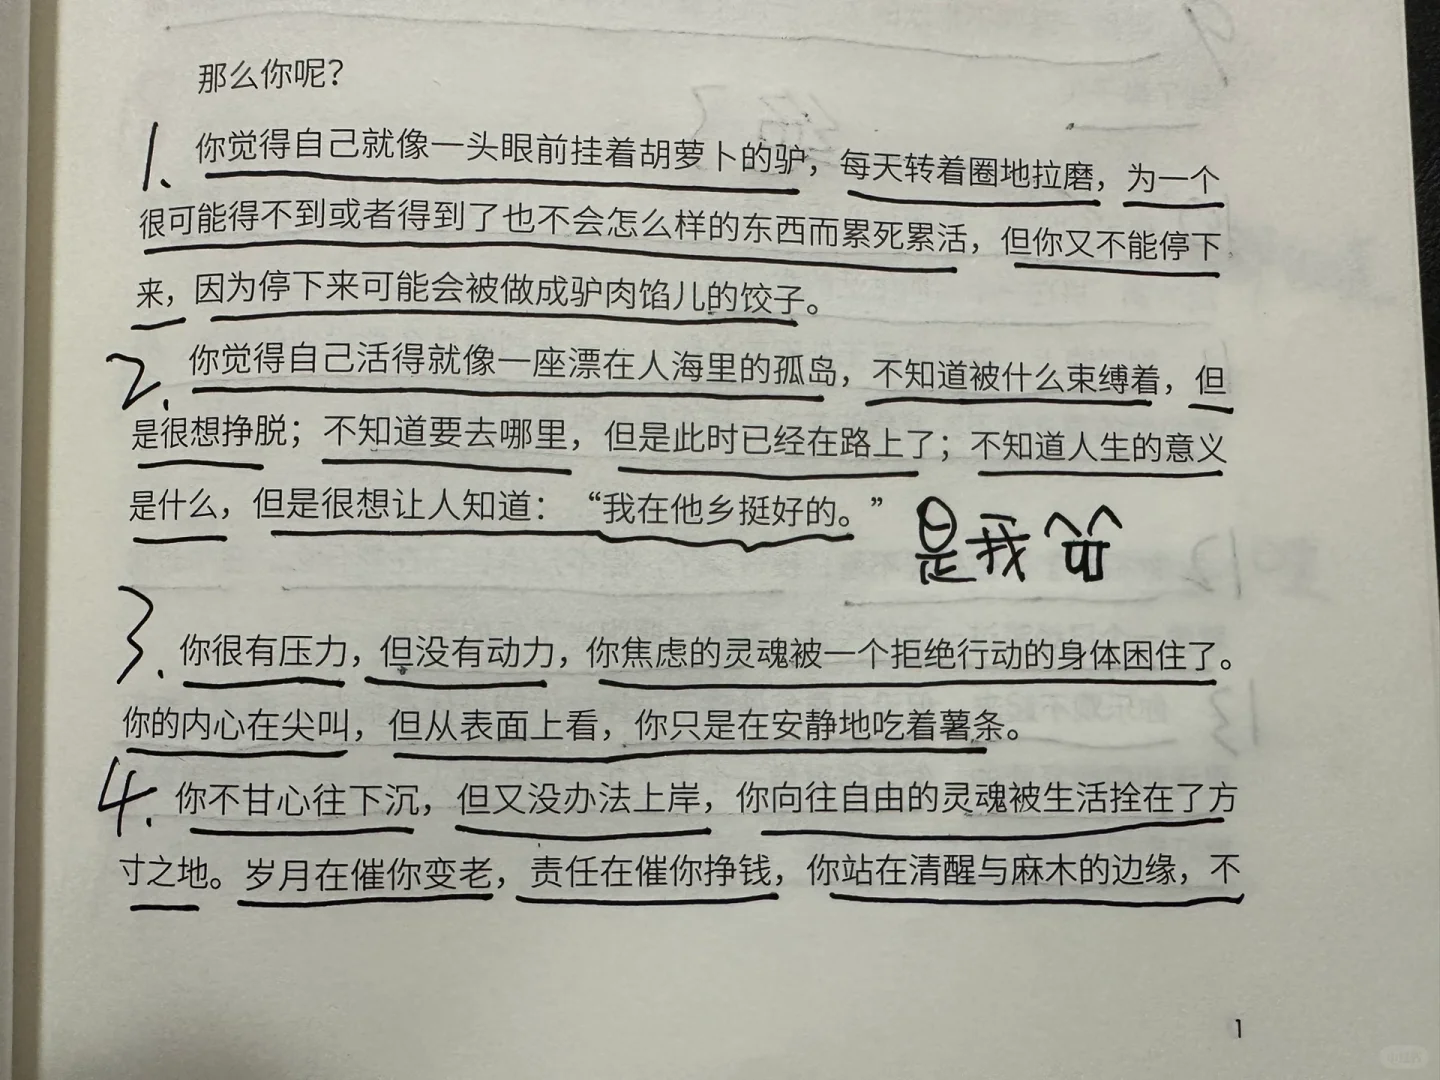 那么你呢？
1. 你觉得自己就像一头眼前挂着胡萝卜的驴，每天转着圈地拉磨，为一个
很可能得不到或者得到了也不会怎么样的东西而累死累活，但你又不能停下
来，因为停下来可能会被做成驴肉馅儿的饺子。
2. 你觉得自己活得就像一座漂在人海里的孤岛，不知道被什么束缚着，但
是很想挣脱；不知道要去哪里，但是此时已经在路上了；不知道人生的意义
是什么，但是很想让人知道：“我在他乡挺好的。”
是我
3. 你很有压力，但没有动力，你焦虑的灵魂被一个拒绝行动的身体困住了。
你的内心在尖叫，但从表面上看，你只是在安静地吃着薯条。
4. 你不甘心往下沉，但又没办法上岸，你向往自由的灵魂被生活拴在了方
寸之地。岁月在催你变老，责任在催你挣钱，你站在清醒与麻木的边缘，不
1